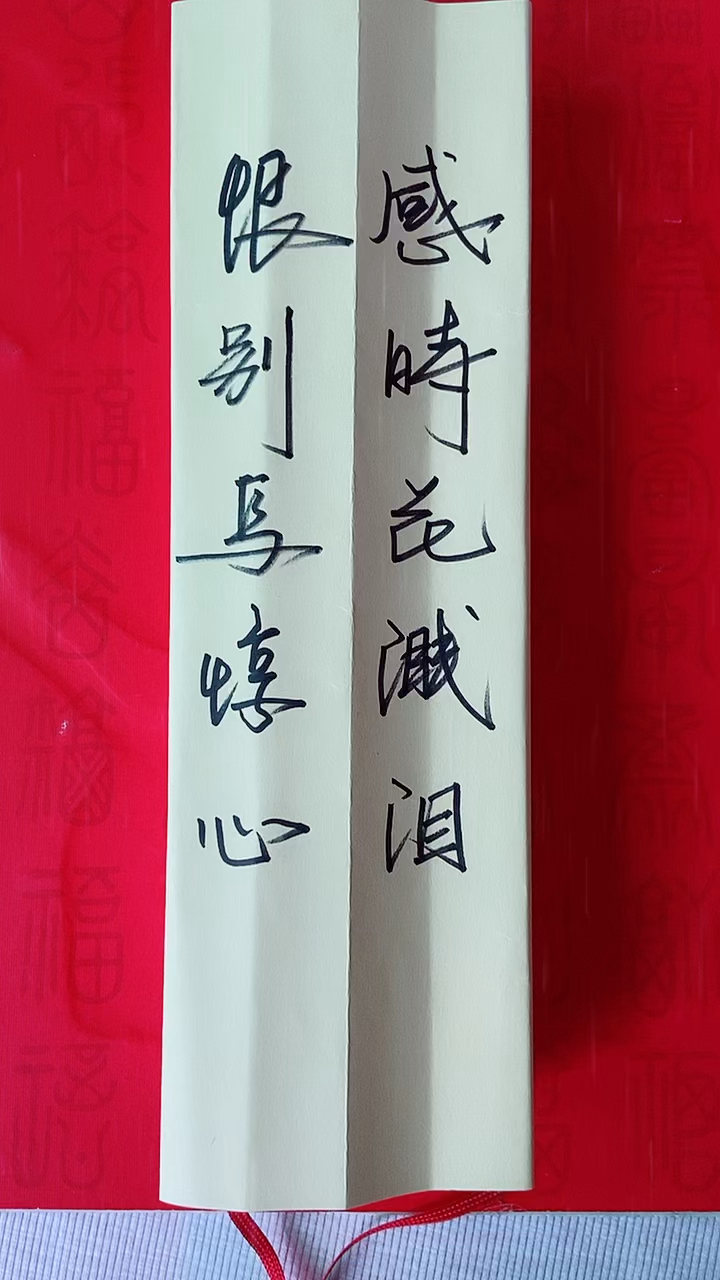 感時花溅泪
恨别鸟惊心